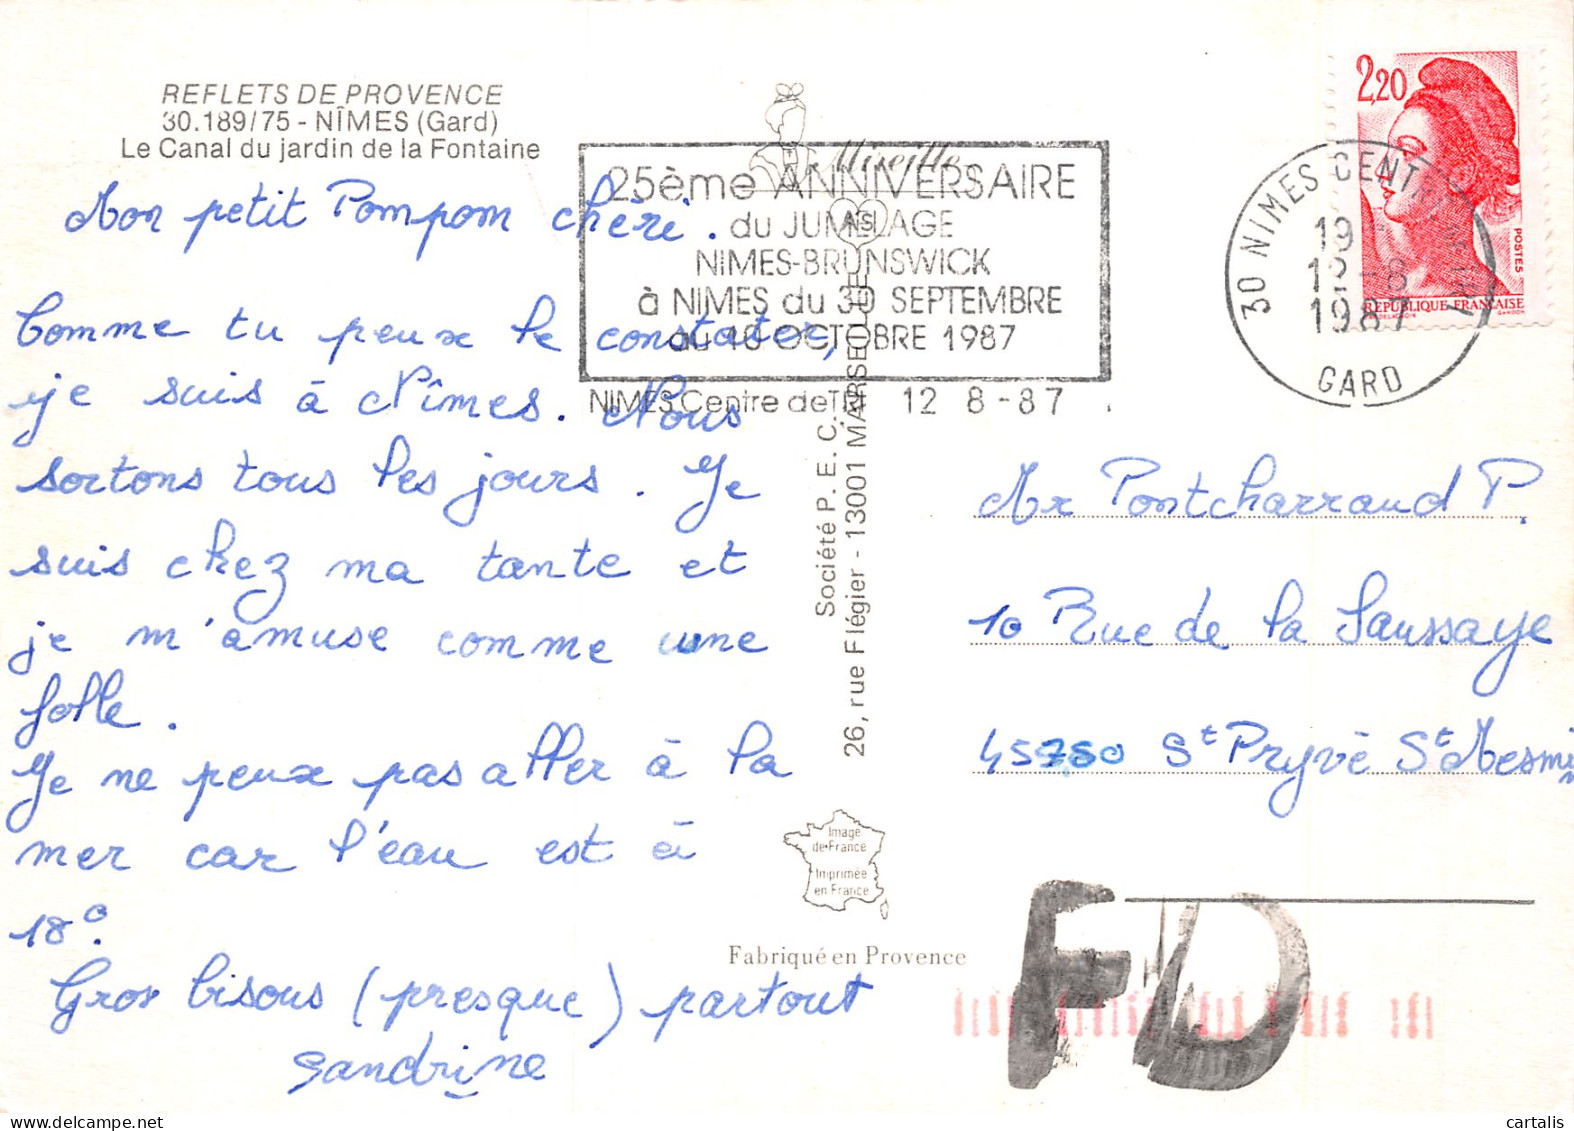 REFLETS DE PROVENCE
30.189/75 - NÎMES (Gard)
Le Canal du jardin de la Fontaine
Mon petit Pompom chéri.
Comme tu peux le constater,
je suis à Nîmes. Nous
sortons tous les jours. Je
suis chez ma tante et
je m'amuse comme une
folle.
Je ne peux pas aller à la
mer car l'eau est à
18°.
Gros bisous (presque) partout
Sandrine
Mireille
25ème ANNIVERSAIRE
du JUMELAGE
NIMES-BRUNSWICK
à NIMES du 30 SEPTEMBRE
au 10 OCTOBRE 1987
NIMES Centre de Tri 12 8-87
Société P. E. C.
26, rue Flégier - 13001 MARSEILLE
Image
de France
Imprimée
en France
Fabriqué en Provence
2,20
POSTES
REPUBLIQUE FRANÇAISE
GANDON
30 NIMES CENTRE DE TRI
19
12-8
1987
GARD
Mr Pontcharraud P.
10 Rue de la Saussaye
45750 St Pryvé St Mesmin
FD
cartalis